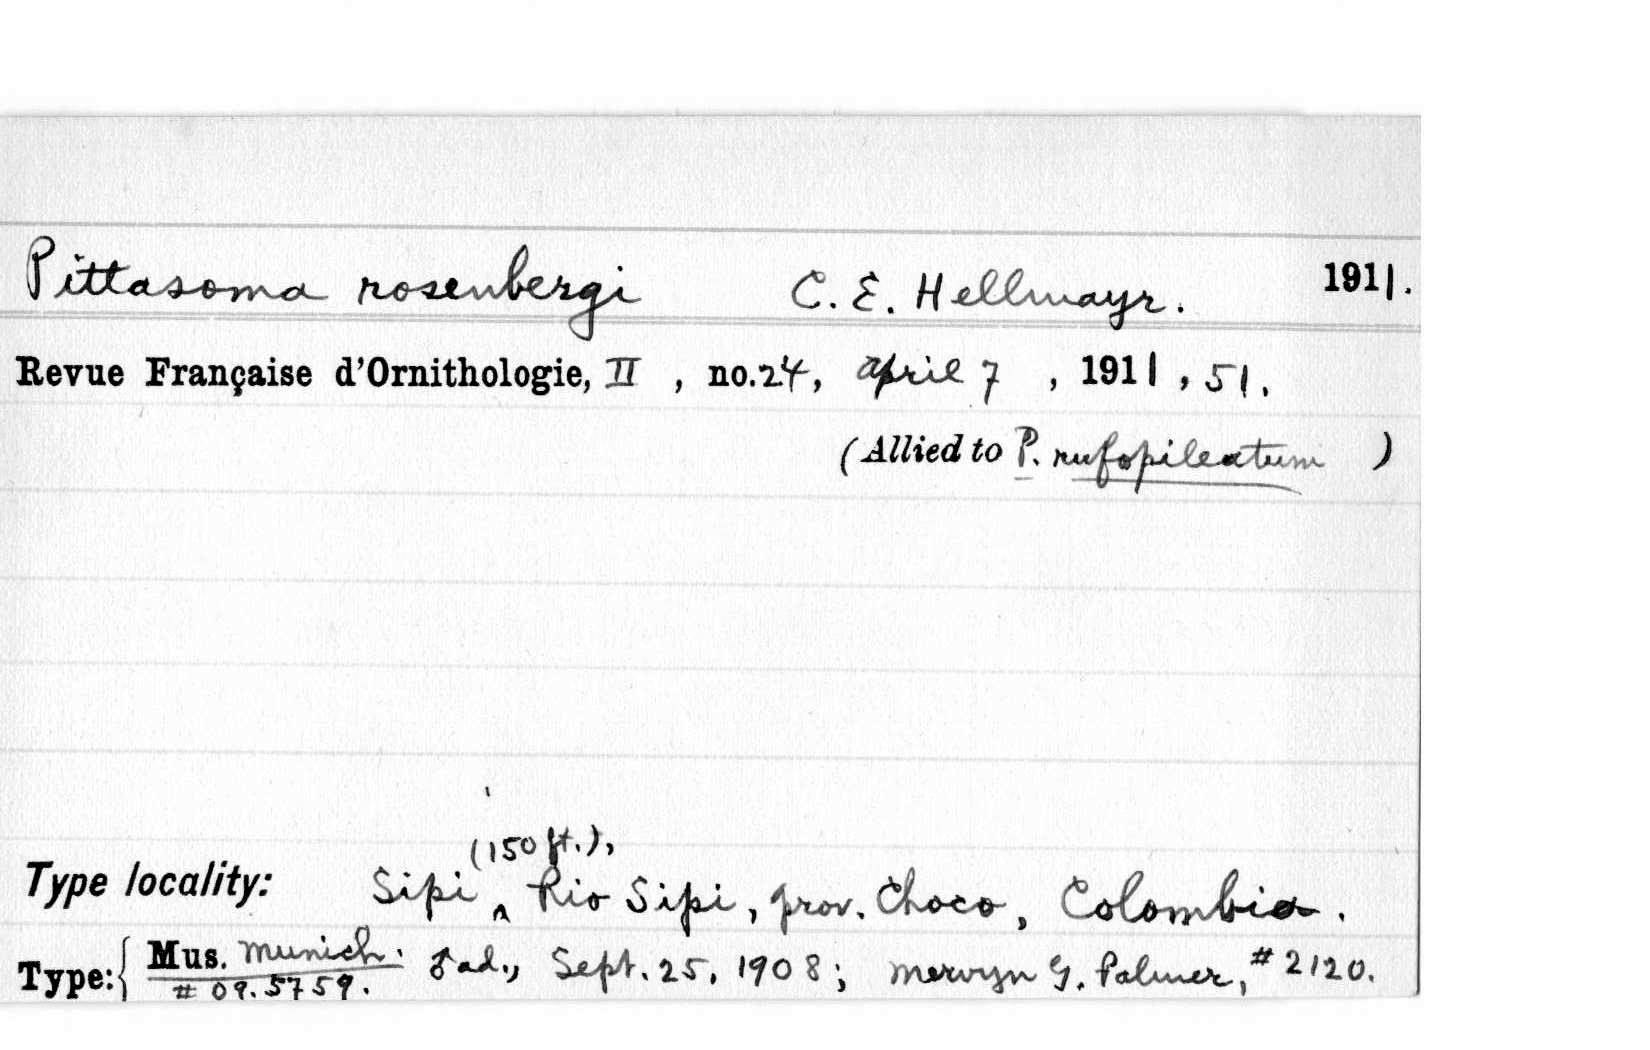 Pittasoma rosenbergi C. E. Hellmayr. 1911.
Revue Française d'Ornithologie, II , no.24, april 7 , 1911 , 51.
(Allied to P. rufopileatum )
(150 ft.),
Type locality: Sipi ^ Rio Sipi, prov. Choco, Colombia.
Type: { Mus. Munich. ♂ ad., Sept. 25, 1908; Mervyn G. Palmer, # 2120.
# 09.5759.